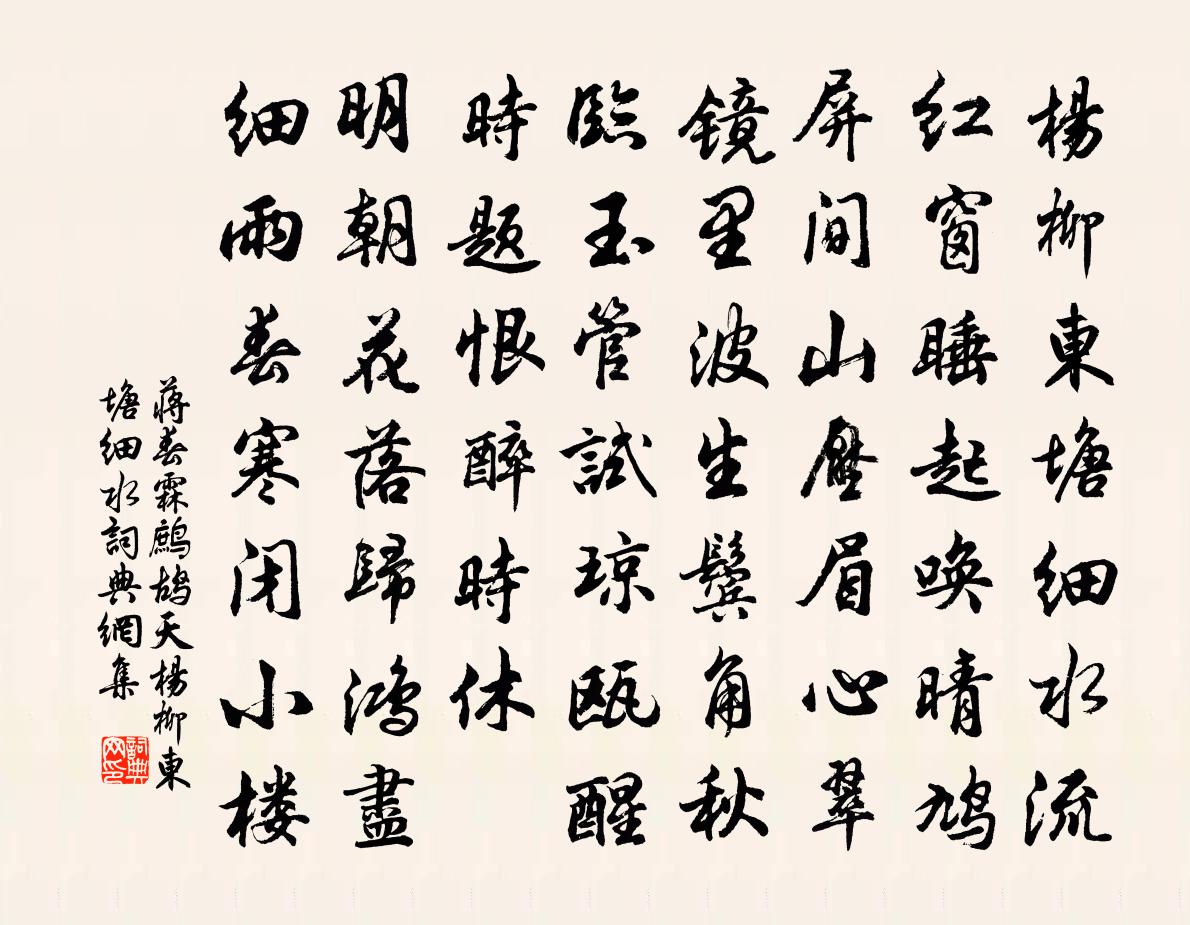 楊柳東塘細水流
红窗睡起唤晴鳩
屏间山壓眉心翠
镜里波生鬓角秋
臨玉管試琼瓯醒
時题恨醉時休
明朝花落歸鸿盡
细雨春寒闭小楼
蒋春霖鷓鴣天楊柳東
塘细水詞典網集
詞典网印